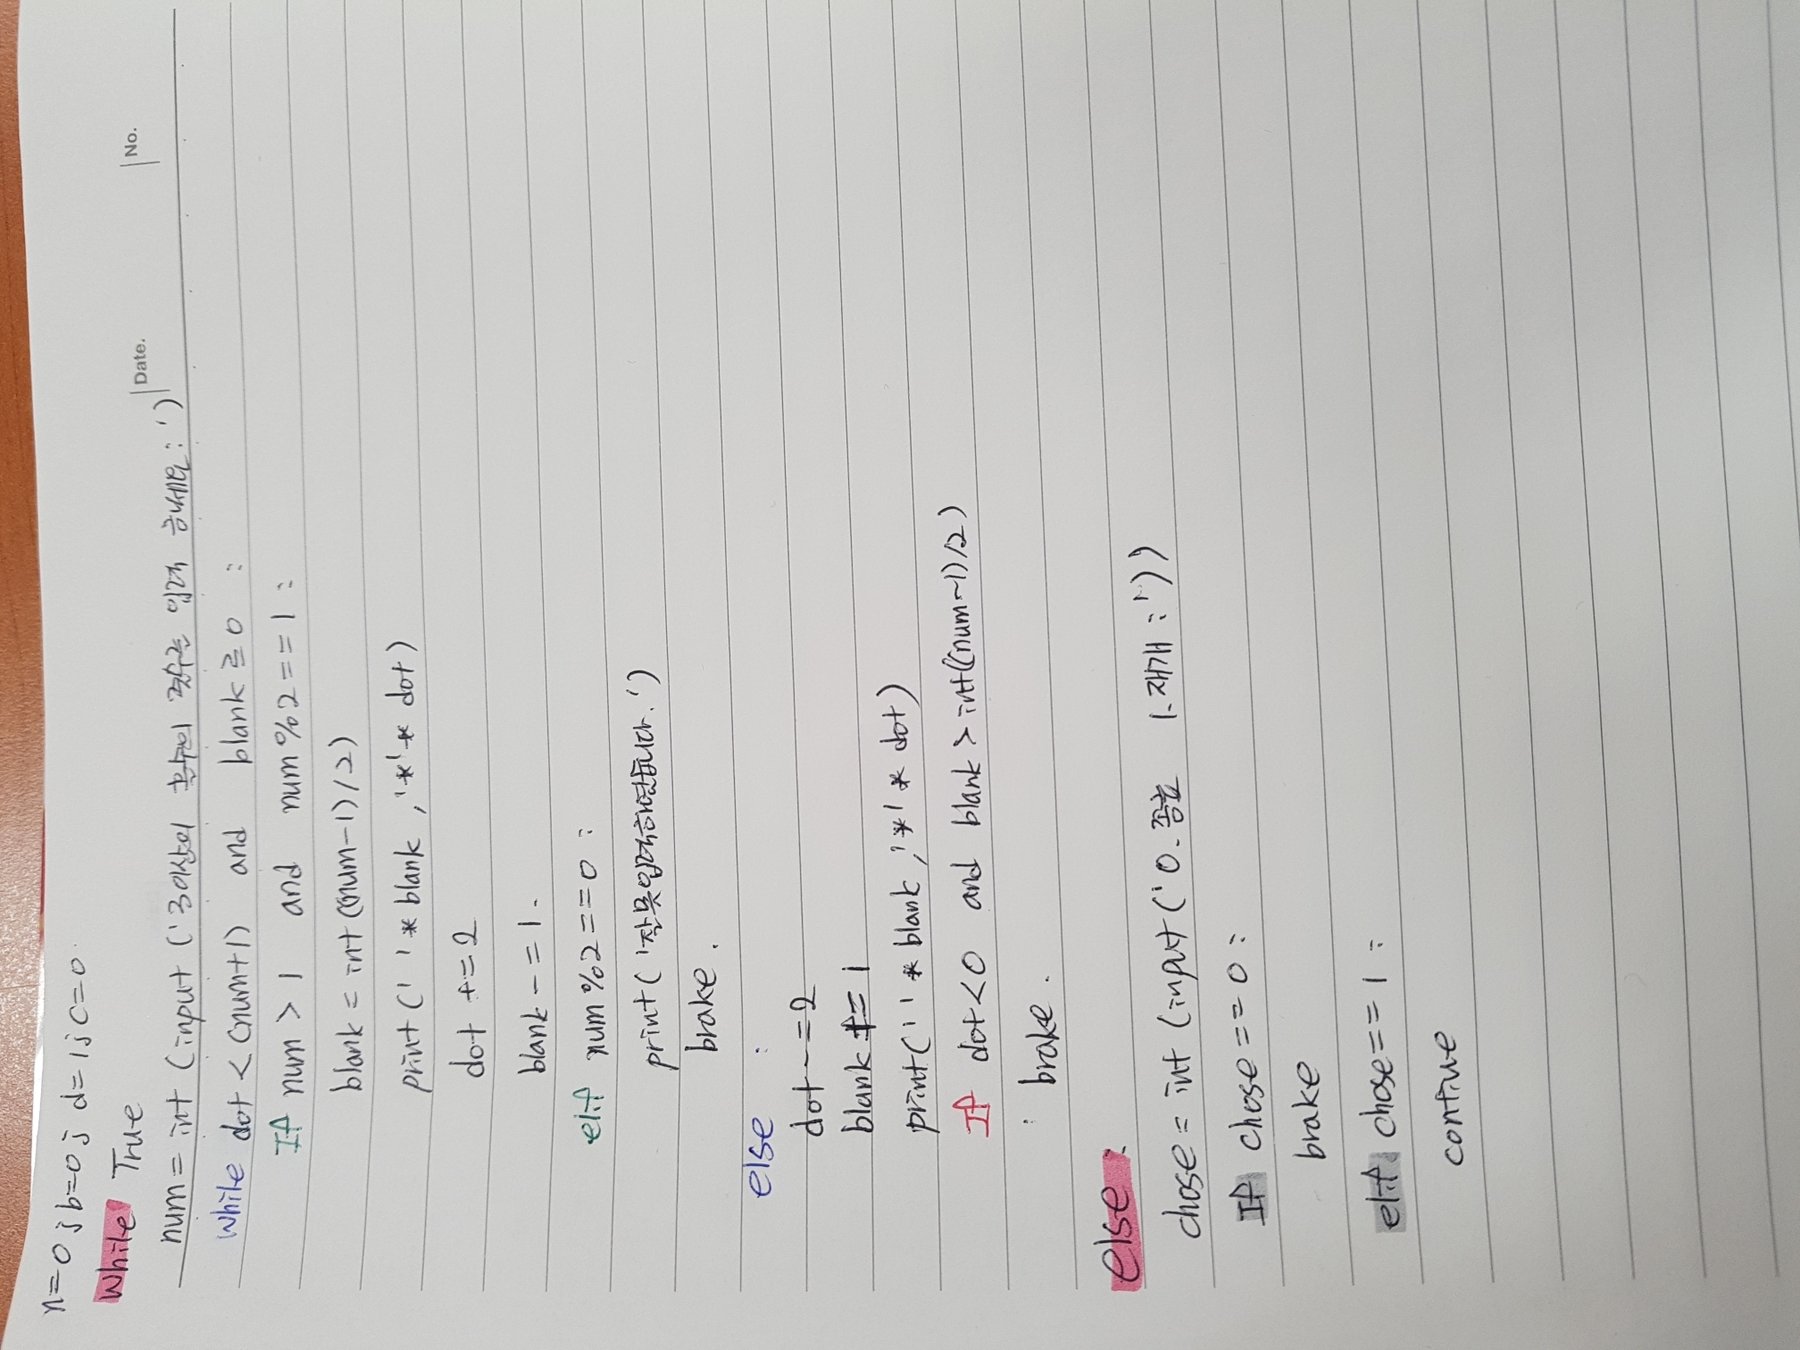 n=0; b=0; d=1; c=0
No.
Date.
While True
num = int (input ('3이상의 홀수인 정수를 입력 하세요: ')
while dot < (num+1) and blank ≥ 0 :
If num > 1 and num%2 == 1 :
blank = int ((num-1)/2)
print(' ' * blank , '*' * dot)
dot += 2
blank -= 1.
elif num%2 == 0 :
print( '잘못입력하였습니다. ')
brake.
else :
dot -= 2
blank += 1
print(' ' * blank , '*' * dot)
If dot < 0 and blank > int((num-1)/2)
: brake.
else :
chose = int (input ('0. 종료 1. 재개 : '))
If chose == 0 :
brake
elif chose == 1 :
continue